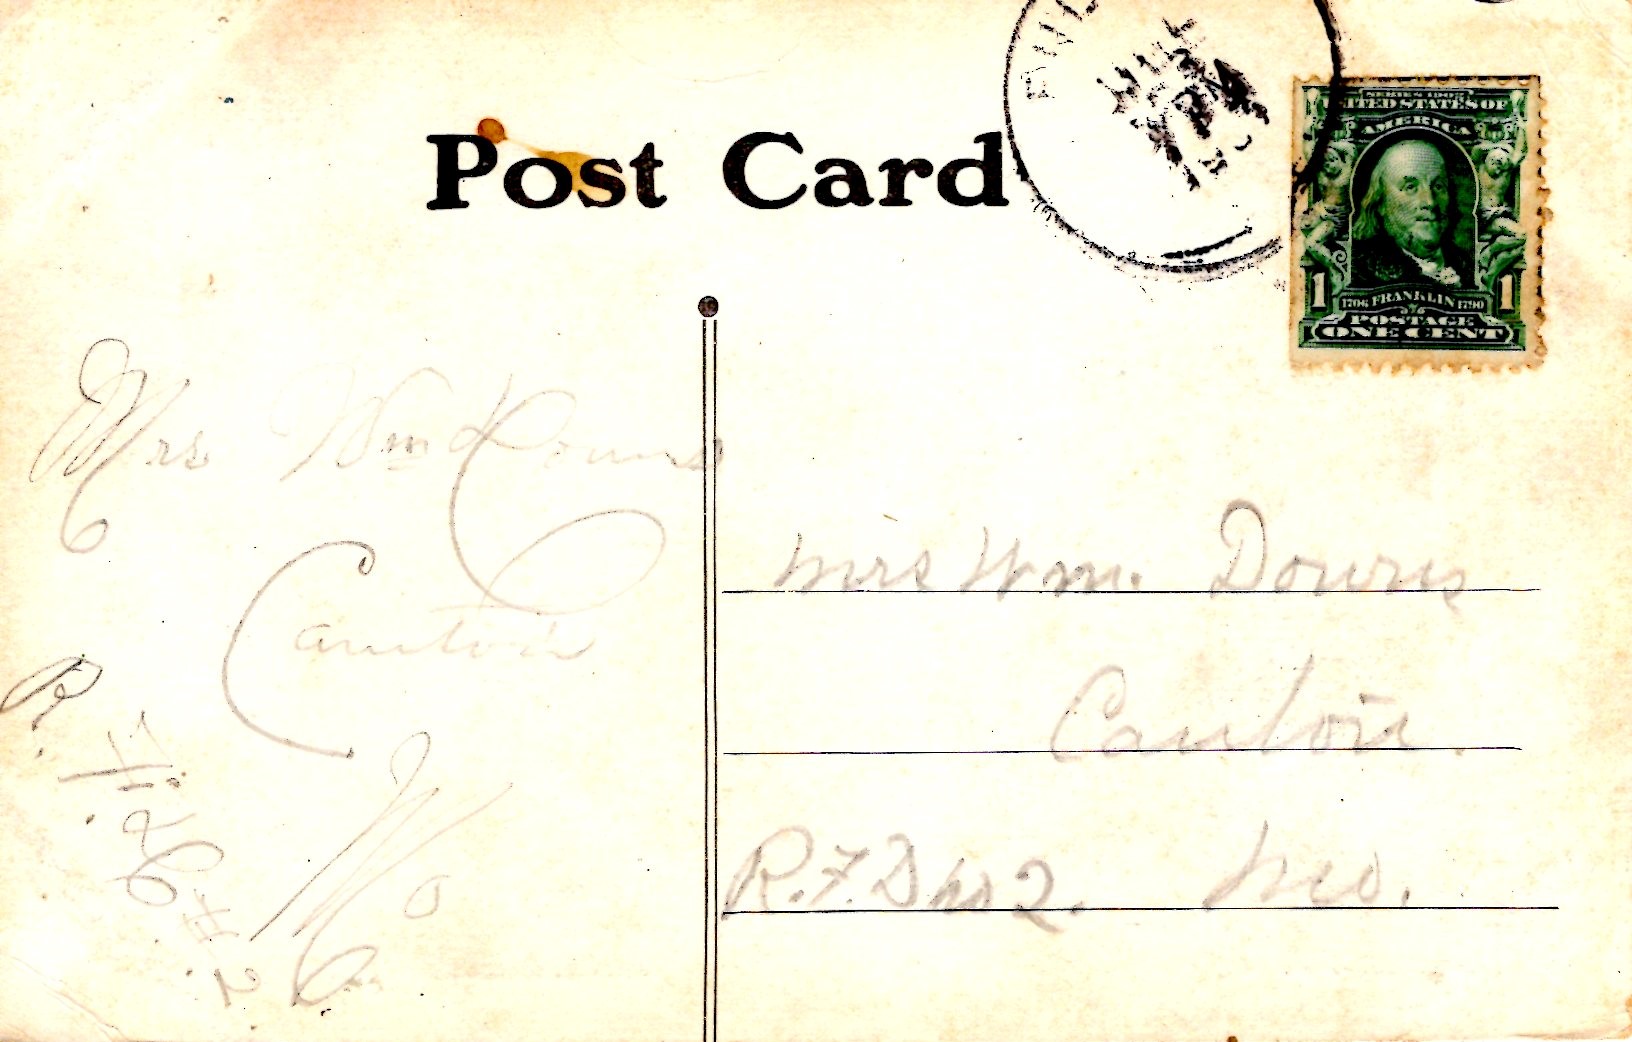 Post Card
PM
SERIES 1902
UNITED STATES OF
AMERICA
1 1706 FRANKLIN 1790 1
POSTAGE
ONE CENT
Mrs Wm Downs
Canton
Mo
R. F. D. # 2
Mrs Wm. Downs
Canton.
R.F.D no 2. Mo.